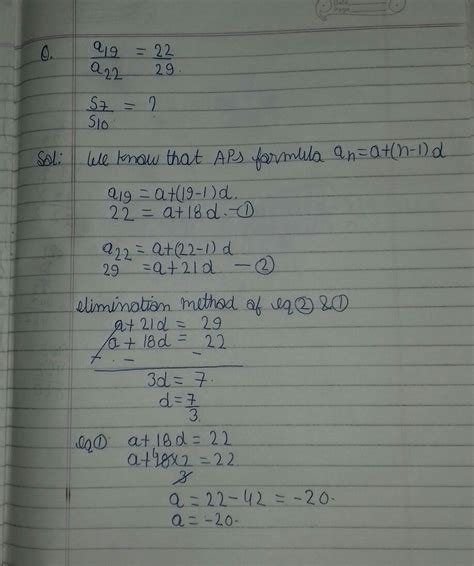 Date
Page
Q. a19/a22 = 22/29
S7/S10 = ?
Sol: We know that APs formula an=a+(n-1)d
a19 = a+(19-1)d.
22 = a+18d. -①
a22 = a+(22-1)d
29 = a+21d — ②
elimination method of eq ② & ①
a+21d = 29
a+18d = 22
- - -
3d = 7.
d = 7/3.
eq ① a+18d = 22
a+18x7/3 = 22.
a = 22-42 = -20.
a = -20.